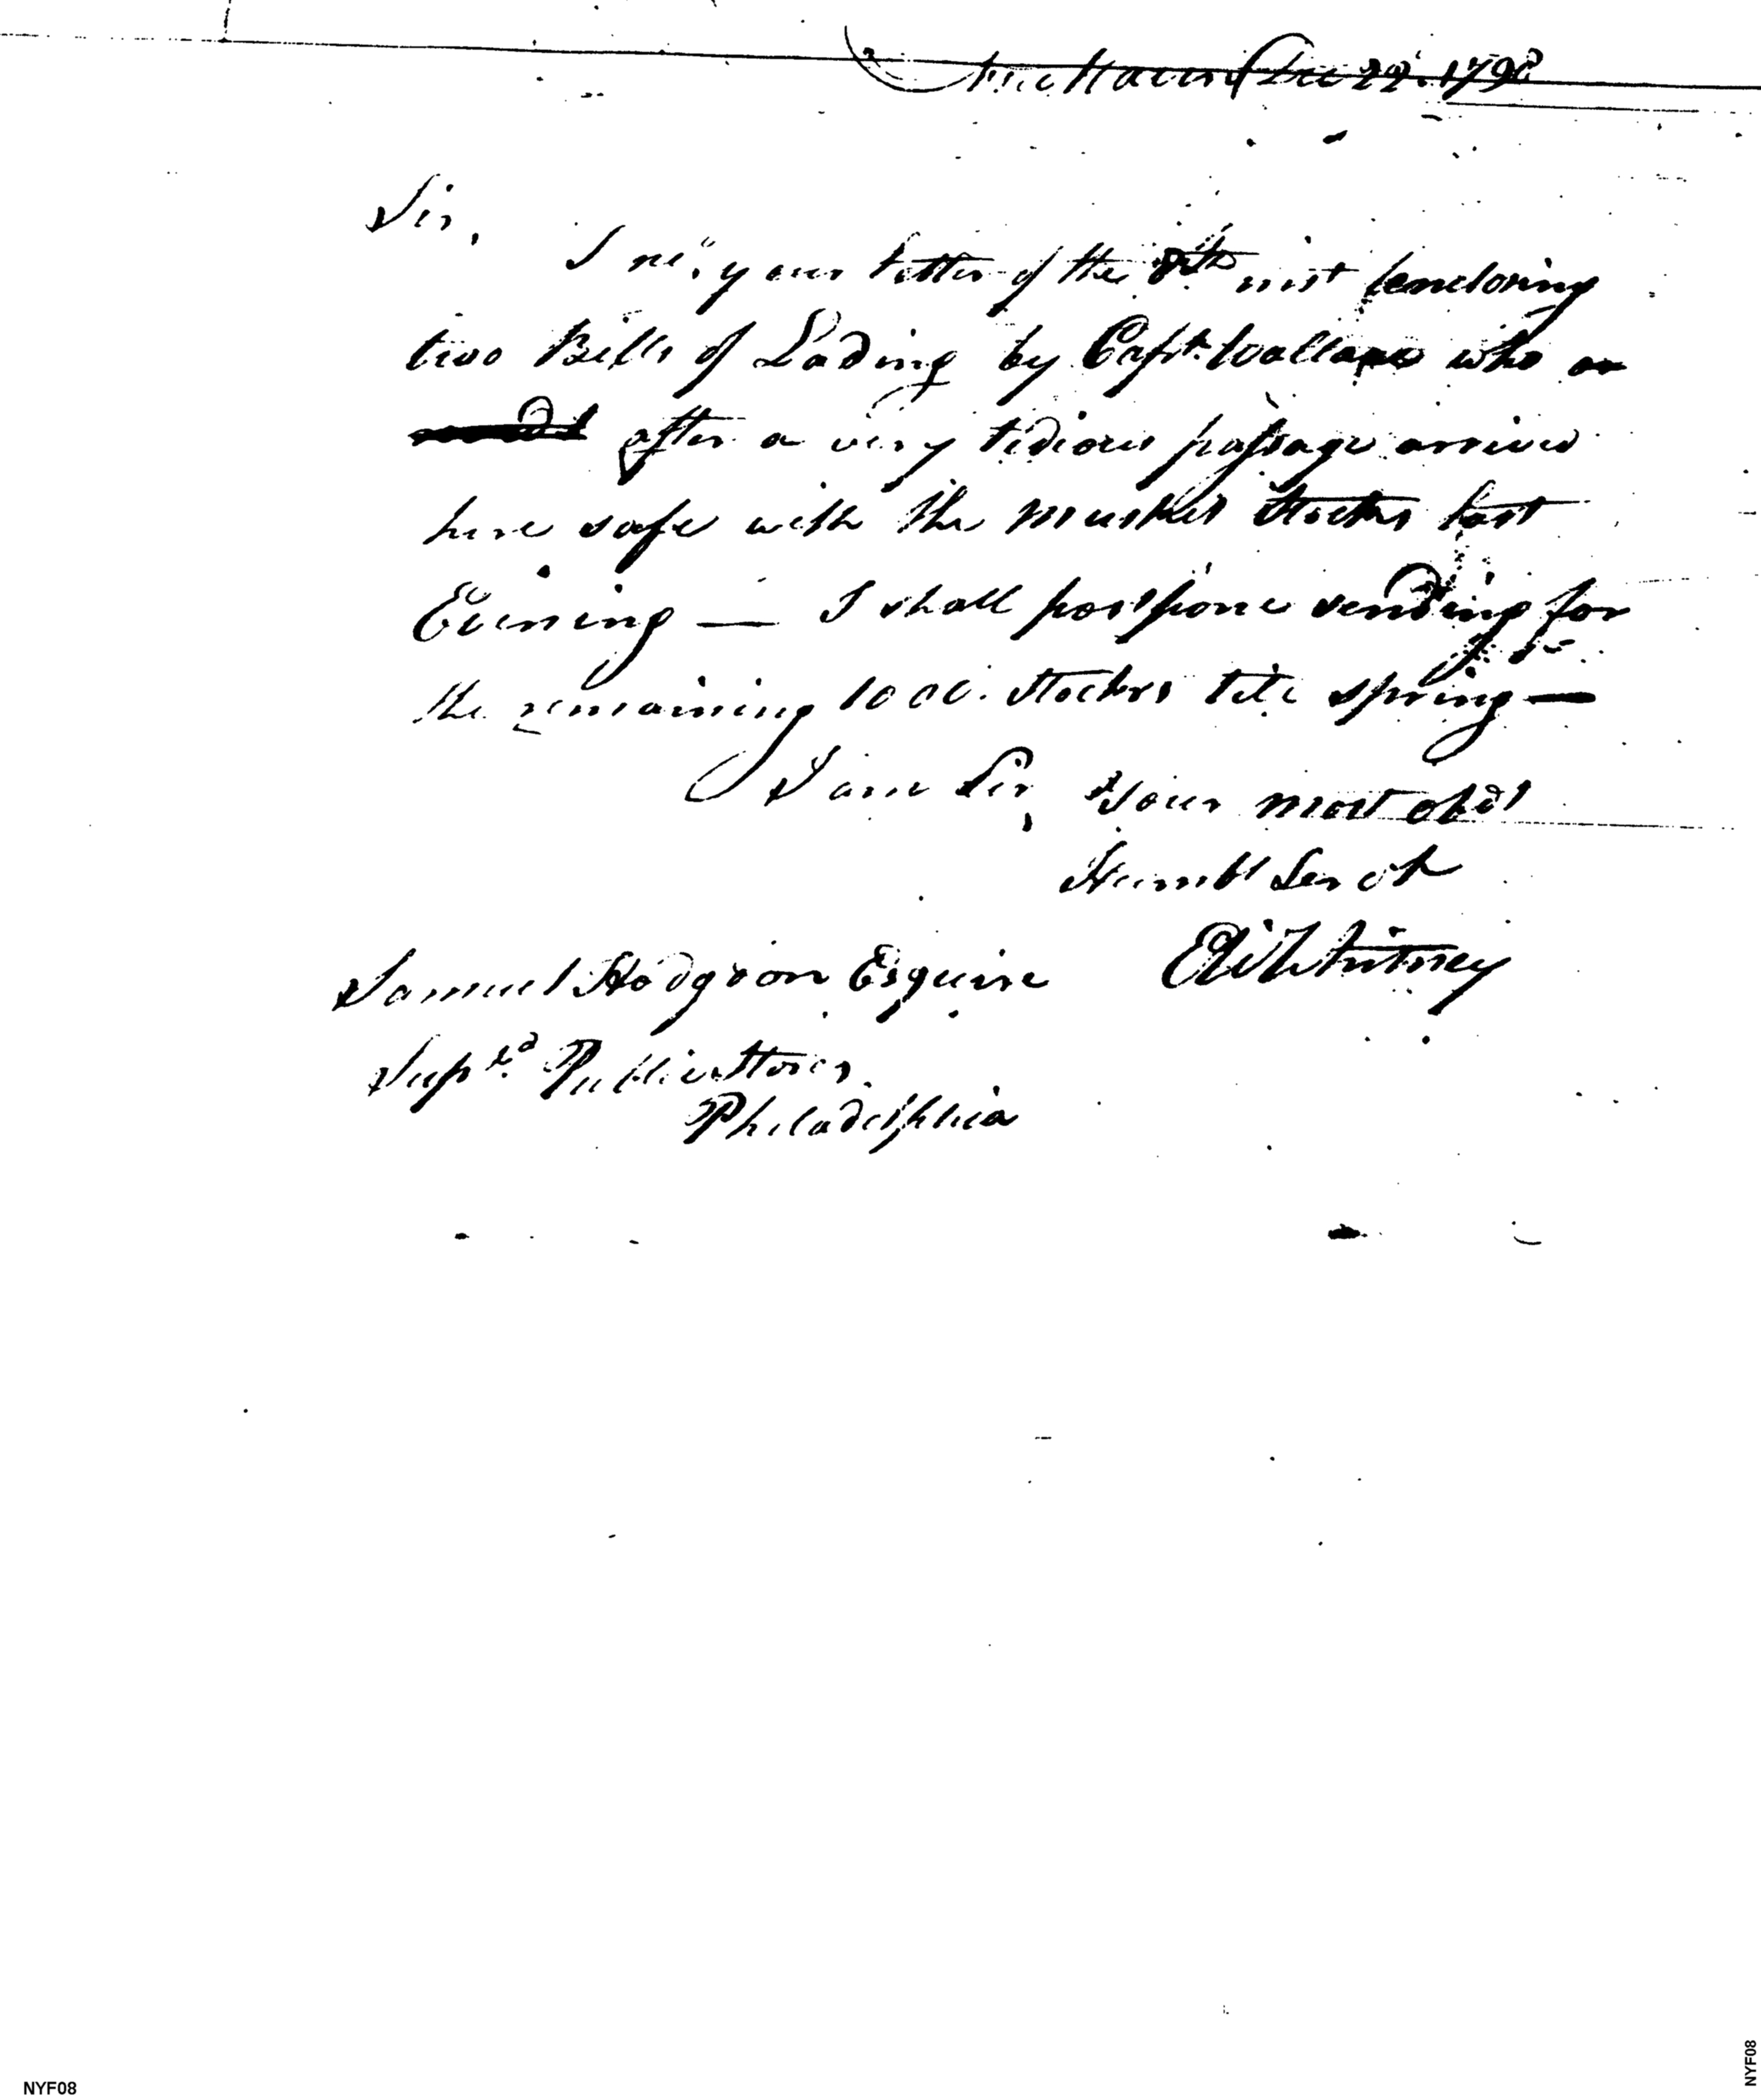 New Haven Dec 22d. 1798
Sir,
I recd. your letter of the 8th inst enclosing
two Bills of Lading by Capt. Wallace who
after a very tedious passage arrived
here safe with the musket Stocks last
Evening — I shall postpone sending for
the remaining 1000. Stocks till spring —
I am Sir, Your most obdt
Humbl Servt
Eli Whitney
Samuel Hodgson Esquire
Suptd. Public Stores
Philadelphia
NYF08
NYF08